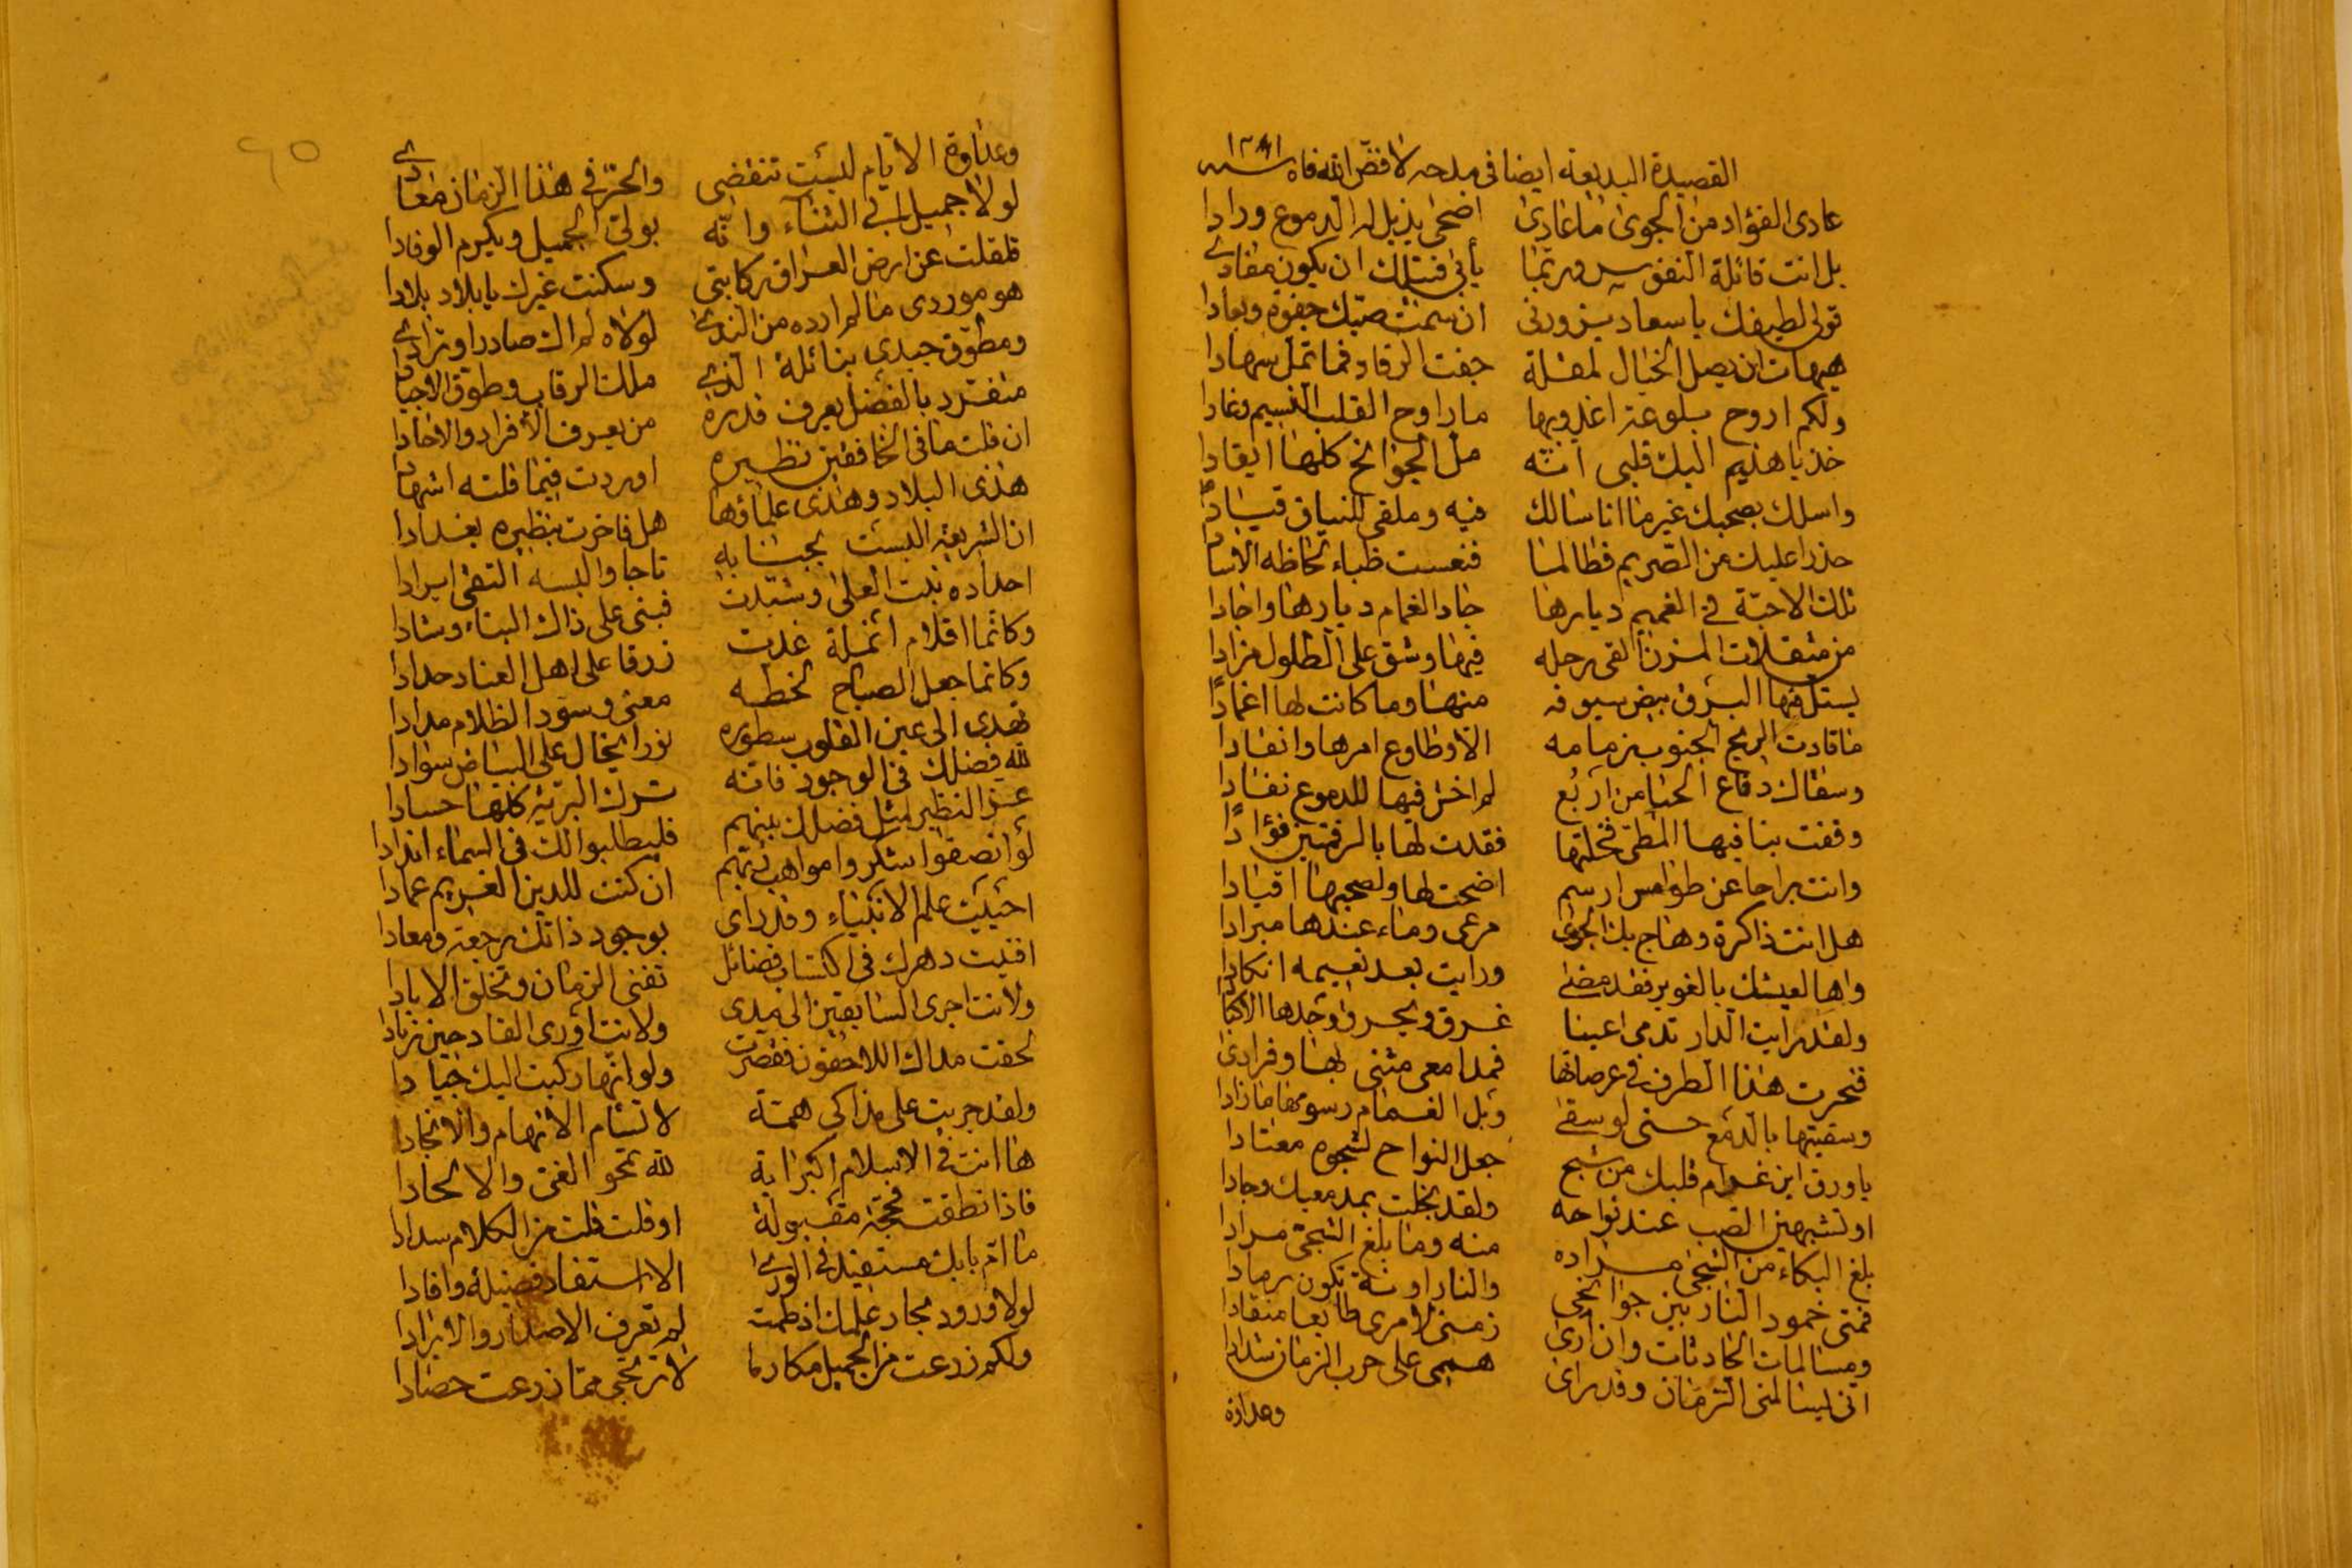 القصيدة البديعة ايضا في مدحه لا فضّ الله فاه سنه
عادى الفؤاد من الجوى ما عادى اضحى يذيل له الدموع ورادا
بل انت قاتلة النفوس وربّما يأبى قتيلك ان يكون مفادى
قولى لطيفك يا سعاد يزورنى ان سمت صبّك جفوة وبعادا
هيهات ان يصل الخيال لمقلة جفت الرقاد فما تملّ سهادا
ولكم اروح بلوعة اغدو بها ما راوح القلب النسيم وغادا
خذ يا هذيم اليك قلبى انّه ملّ الجوانح كلها ايقادا
واسلك بصحبك غير ما انا سالك فيه وملقى للنياق قيادًا
حذرا عليك من الصّريم فطالما قنصت ظباء لحاظه الآسادا
تلك الاحبّة فى الغميم ديارها جاد الغمام ديارها واجادا
من مثقلات المزن القى رحله فيها وشق على الطلول مزادا
يستلّ فيها البرق بيض سيوفه منها وما كانت لها اغمادًا
ما قادت الريح الجنوب زمامه الّا وطاوع امرها وانقادا
وسقاك دفّاع الحيا من اربُع لم اخش فيها للدموع نفادا
وقفت بنا فيها المطىّ فخلتها فقدت لها بالرقمتين فؤادًا
وانت براحا عن طوامس ارسم اضحت لها ولصحبها اقيادا
هل انت ذاكرة وهاج بك الجوى مرعى وماء عندها مبرادا
واها لعيشك بالغوير فقد مضى ورايت بعد نعيمه انكادا
ولقد رايت الدار تدمى اعينا غرق ويحرق وجدها الاكبادا
فنحرت هذا الطرف فى عرصاتها فمدامعى مثنى بها وفرادى
وسقيتها بالدمع حتى لو سقى وبل الغمام رسومها ما زادا
يا ورق اين غرام قلبك من شج جعل النواح لشجوه معتادا
او تشبهين الصّب عند نواحه ولقد بخلت بمدمعيك وجادا
بلغ البكاء من الشجى مراده منه وما بلغ الشجىّ مرادا
فمتى خمود النار بين جوانحى والنار اونة تكون رمادا
ومسالمات الحادثات وان ارى زمنى لامرى طايعا منقادا
انّى ليسالمنى الزمان وقد راى همى على حرب الزمان شدادا
وعداوة
وعداوة الايام ليست تنقضى والحرّ فى هذا الزمان معادى
لولا جميل ابى الثناء وانّه يولى الجميل ويكرم الوفادا
قلقلت عن ارض العراق ركابتى وسكنت غيرك يا بلاد بلادا
هو موردى ما لم ارده من الندى لولاه لم اك صادرا او ورّادا
ومطوّق جيدى بنائله الذى ملك الرقاب وطوق الاجيادا
متفرد بالفضل يعرف قدره من يعرف الأفراد والاحادا
ان قلت ما فى الخافقين نظيره اوردت فيما قلته اشهادا
هذى البلاد وهذى علماؤها هل فاخرت بنظيره بغدادا
ان الشريعة البست بجنابه تاجا والبسه التقى ابرادا
اجداده بنت العلى وشيّدت فبنى على ذاك البناء وشادا
وكانّما اقلام انملة غدت زرقا على اهل العناد حدادا
وكانما جعل الصباح لخطه معنى وسود الظلام مدادا
تهدى الى عين القلوب سطوره نورا يخال على البياض سوادا
لله فضلك فى الوجود فانّه ترك البريّة كلها حسادا
عزّ النظير لمثل فضلك بينهم فليطلبوا لك فى السماء اندادا
لو أنصفوا شكروا مواهب ربّهم ان كنت للدين القويم عمادا
احييت علم الانبياء وقد راى بوجود ذاتك رجعة ومعادا
افنيت دهرك فى اكتساب فضائل تفنى الزمان وتخلق الابادا
ولأنت اجرى السابقين الى مدى ولانت أورى القادحين زنادا
لحقت مداك اللاحقون فقصرت ولو انها ركبت اليك جيادا
ولقد جريت على مذاكى همّة لا تسأم الاتهام والانجادا
ها انت فى الاسلام اكبر اية لله تمحو الغىّ والالحادا
فاذا نطقت فحجّة مقبولة او قلت قلت من الكلام سدادا
ما امّ بابك مستفيد فى الورى الا استفاد فضيلة وافادا
لولا ورود بحار علمك اذ طمت لم تعرف الاصدار والايرادا
ولكم زرعت من الجميل مكارما لا ترتجى ممّا زرعت حصادا